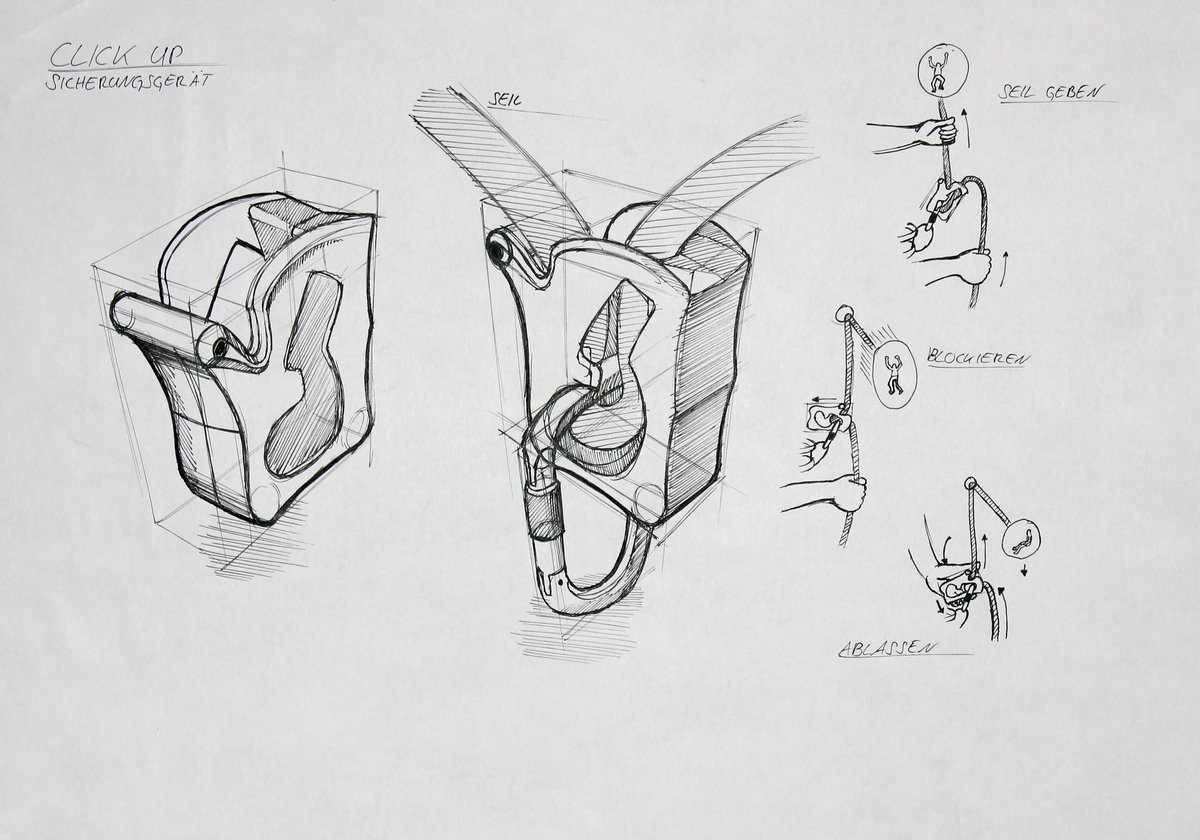 CLICK UP
SICHERUNGSGERÄT
SEIL
SEIL GEBEN
BLOCKIEREN
ABLASSEN